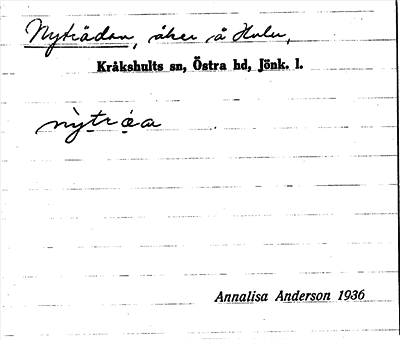 Nyträdan, åker å Hulu,
Kråkshults sn, Östra hd, Jönk. l.
nỳtræ̣a
Annalisa Anderson 1936